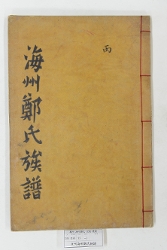 丙
海州鄭氏族譜